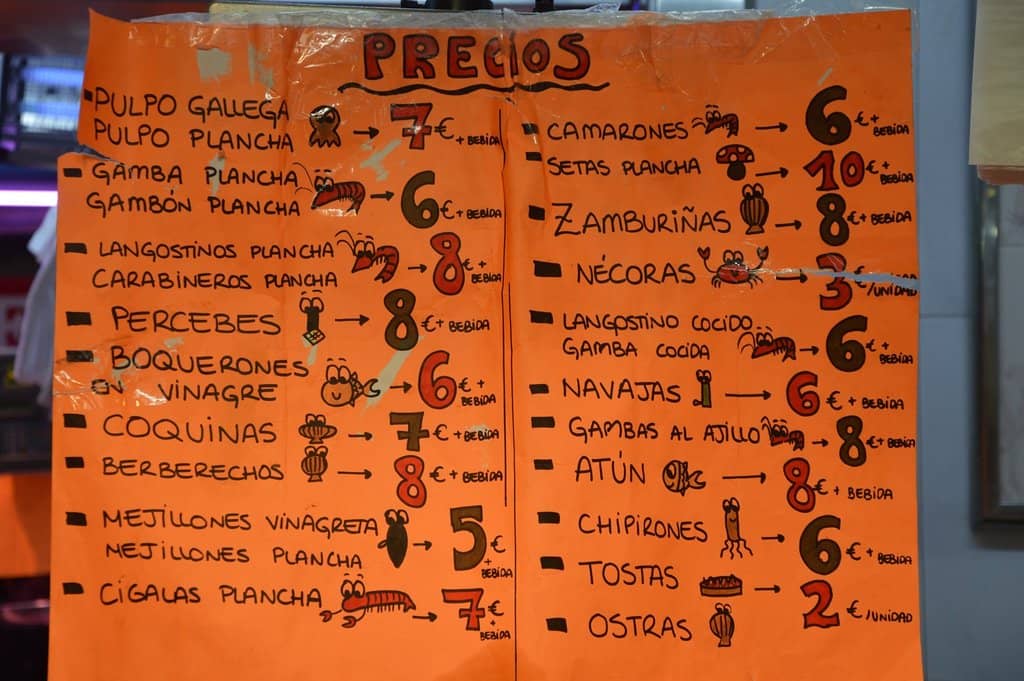 PRECIOS
PULPO GALLEGA
PULPO PLANCHA → 7€ + BEBIDA
GAMBA PLANCHA
GAMBÓN PLANCHA → 6€ + BEBIDA
LANGOSTINOS PLANCHA
CARABINEROS PLANCHA → 8€ + BEBIDA
PERCEBES → 8€ + BEBIDA
BOQUERONES
EN VINAGRE → 6€ + BEBIDA
COQUINAS → 7€ + BEBIDA
BERBERECHOS → 8€ + BEBIDA
MEJILLONES VINAGRETA
MEJILLONES PLANCHA → 5€ + BEBIDA
CÍGALAS PLANCHA → 7€ + BEBIDA
CAMARONES → 6€ + BEBIDA
SETAS PLANCHA → 10€ + BEBIDA
ZAMBURIÑAS → 8€ + BEBIDA
NÉCORAS → 3€/UNIDAD
LANGOSTINO COCIDO
GAMBA COCIDA → 6€ + BEBIDA
NAVAJAS → 6€ + BEBIDA
GAMBAS AL AJILLO → 8€ + BEBIDA
ATÚN → 8€ + BEBIDA
CHIPIRONES → 6€ + BEBIDA
TOSTAS → 2€/UNIDAD
OSTRAS